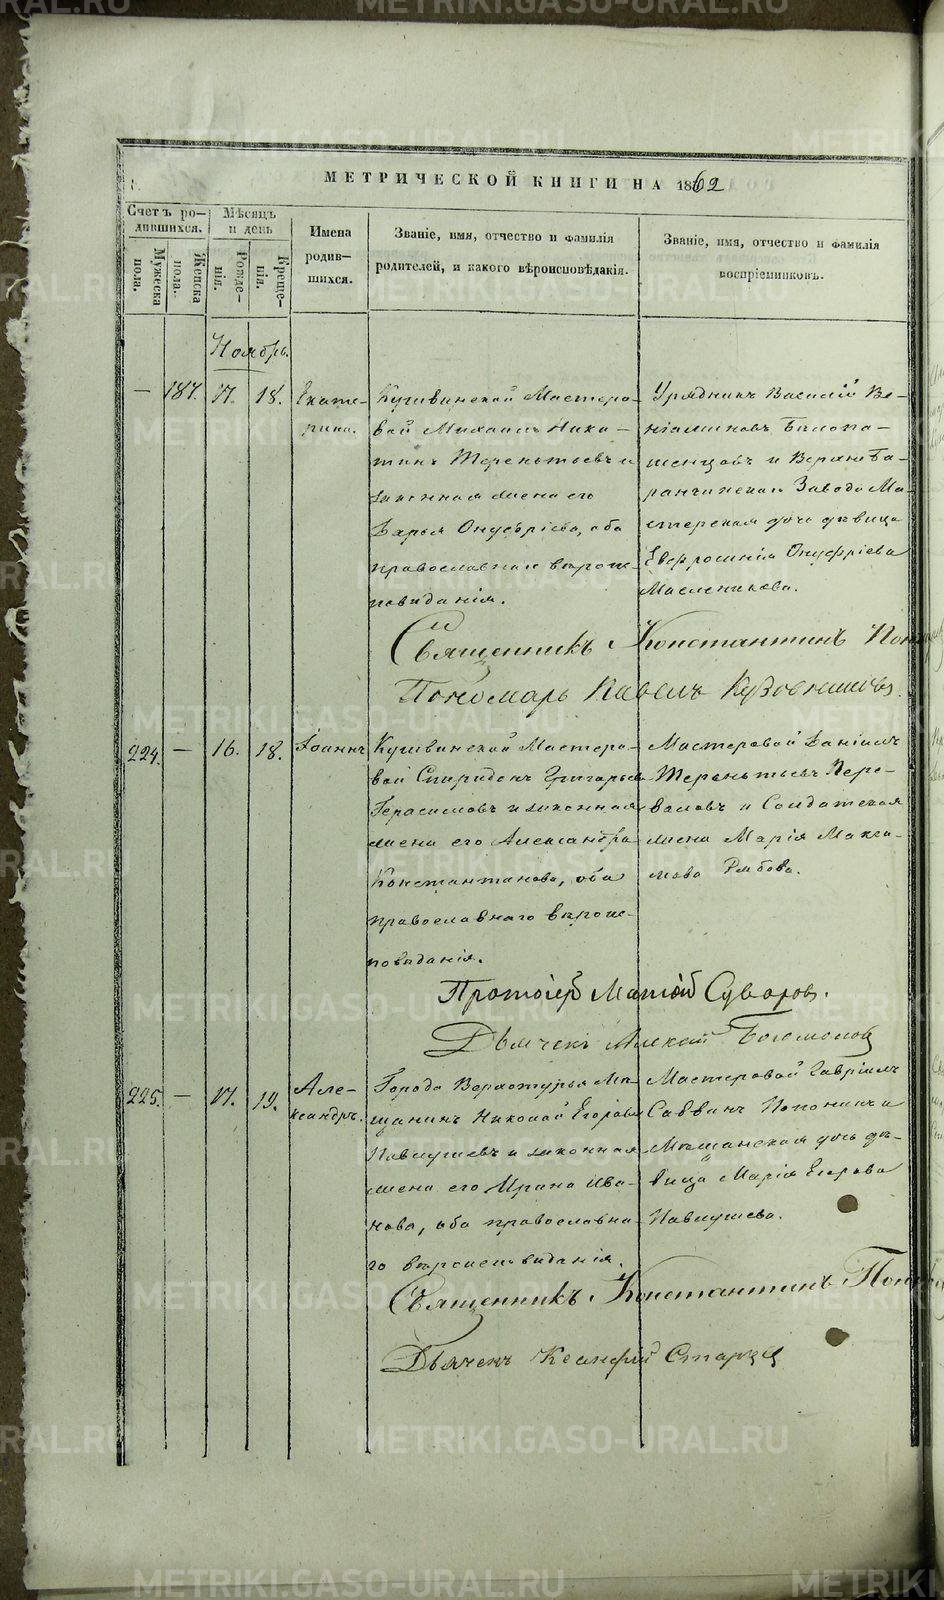 МЕТРИЧЕСКОЙ КНИГИ НА 1862
Счетъ ро-
дившихся.
Мужеска
пола.
Женска
пола.
Мѣсяцъ
и день
Рожде-
нія.
Креще-
нія.
Имена
родив-
шихся.
Званіе, имя, отчество и фамилія
родителей, и какого вѣроисповѣданія.
Званіе, имя, отчество и фамилія
воспріемниковъ.
Ноябрь.
— 187. 17. 18.
Екате-
рина.
Кушвинской Мастеро-
вой Михаилъ Ники-
тинъ Терентьевъ и
законная жена его
Дарья Онуфріева, оба
православнаго вѣроис-
повиданія.
Урядникъ Василій Ве-
ніаминовъ Билопа-
шенцовъ и Верхне Ба-
ранчинскаго Завода Ма-
стерская дочь дѣвица
Евфросинія Онуфріева
Масленикова.
Священникъ Константинъ
Пономарь Павелъ Кузовниковъ.
224. — 16. 18.
Іоаннъ
Кушвинской Мастеро-
вой Спиридонъ Григорьев
Герасимовъ и законная
жена его Александра
Константинова, оба
православнаго вѣроис-
повѣданія.
Мастеровой Даніилъ
Терентьевъ Пере-
валовъ и Солдатская
жена Марія Макси-
мова Рябова.
Протоіерей Матѳій Суворовъ.
Дьячекъ Алексий Богомолов
225. — 17. 19.
Але-
ксандръ.
Города Верхотурья Мѣ-
щанинъ Николай Егоровъ
Павлушевъ и законная
жена его Ирина Ива-
нова, оба православна-
го вѣроисповиданія.
Мастеровой Гавріилъ
Саввинъ Попонинъ и
Мѣщанская дочь дѣ-
вица Марія Егорова
Павлушева.
Священникъ Константинъ
Дьячекъ Ксанфій Старцев
METRIKI.GASO-URAL.RU